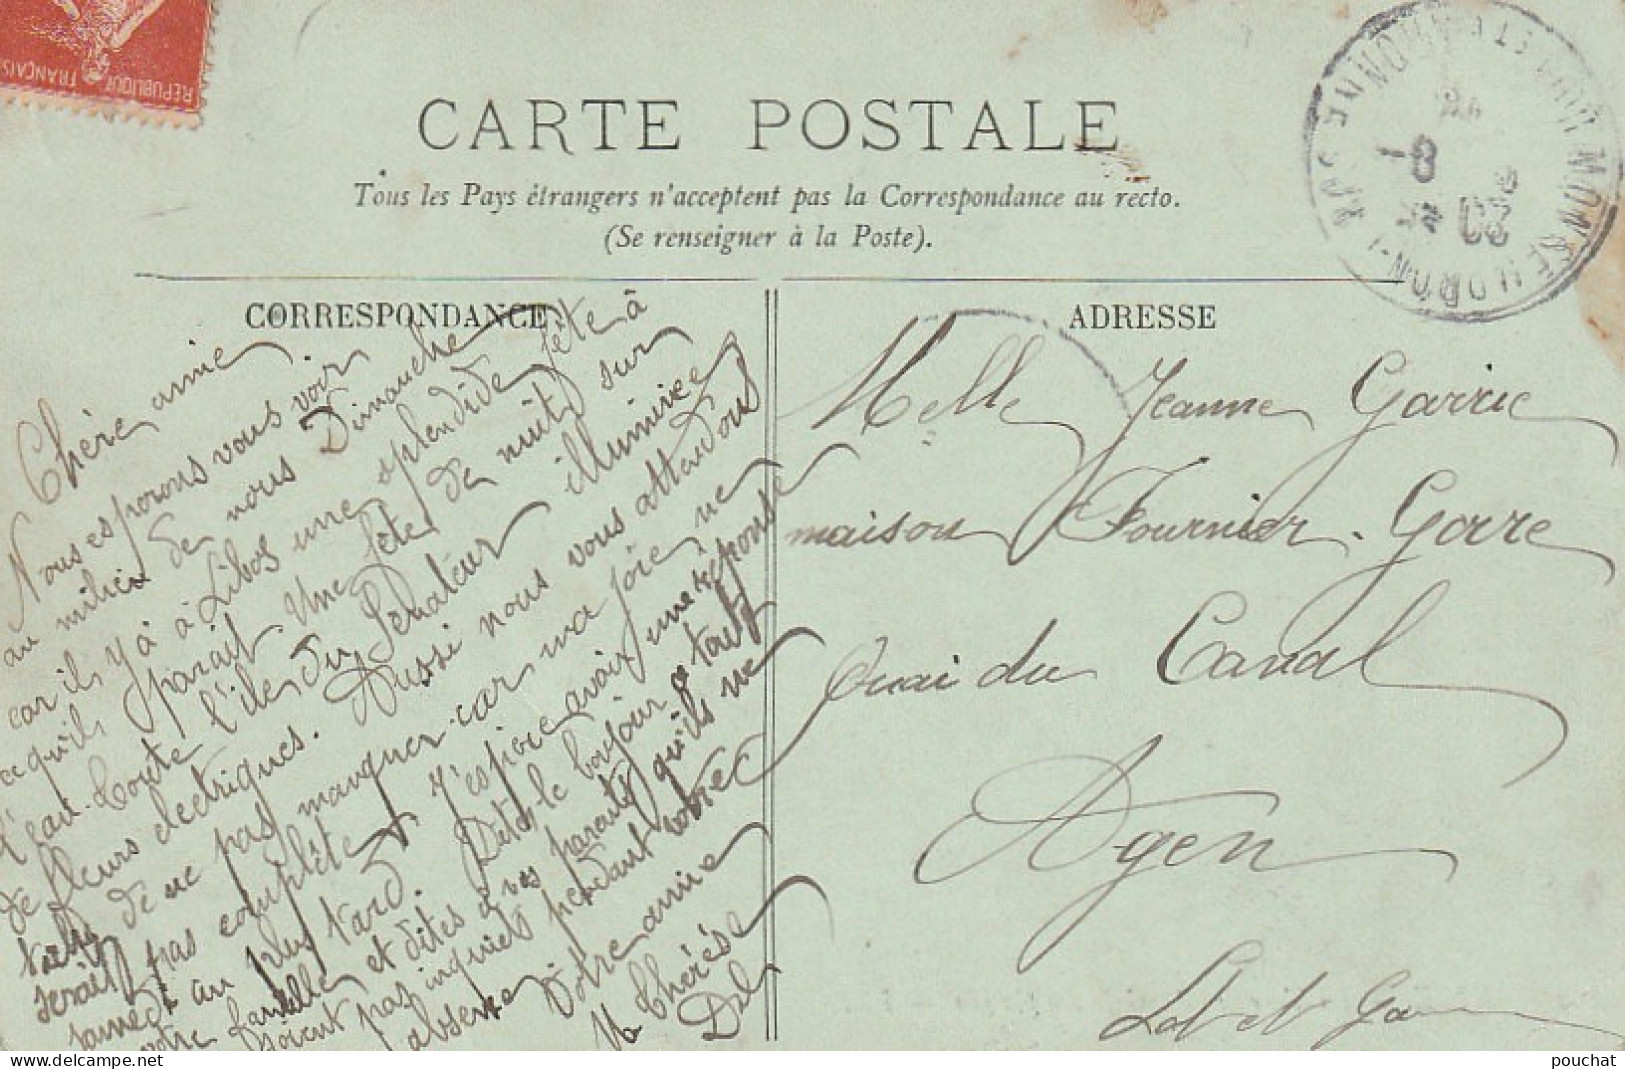 REPUBLIQUE FRANÇAISE
CARTE POSTALE
Tous les Pays étrangers n'acceptent pas la Correspondance au recto.
(Se renseigner à la Poste).
CORRESPONDANCE
Chère amie
Nous esperons vous voir
au milieu de nous Dimanche
car ils y à à Libos une splendide fête à
ce qu'ils parait. Une fête de nuit sur
l'eau. toute l'île du Senateur illuminee
de fleurs electriques. Aussi nous vous attendons
de ne pas manquer car ma joie ne
serait pas complète. J'espère avoir une reponse
samedi au plus tard. Dites-le bonjour a toute
votre famille et dites a vos parents qu'ils ne
soient pas inquiets pendant votre
absence Votre amie
M Thérèse
Del
ADRESSE
Melle Jeanne Garric
maison Fournier. Garre
Quai du Canal
Agen
Lot et Gar
pouchat